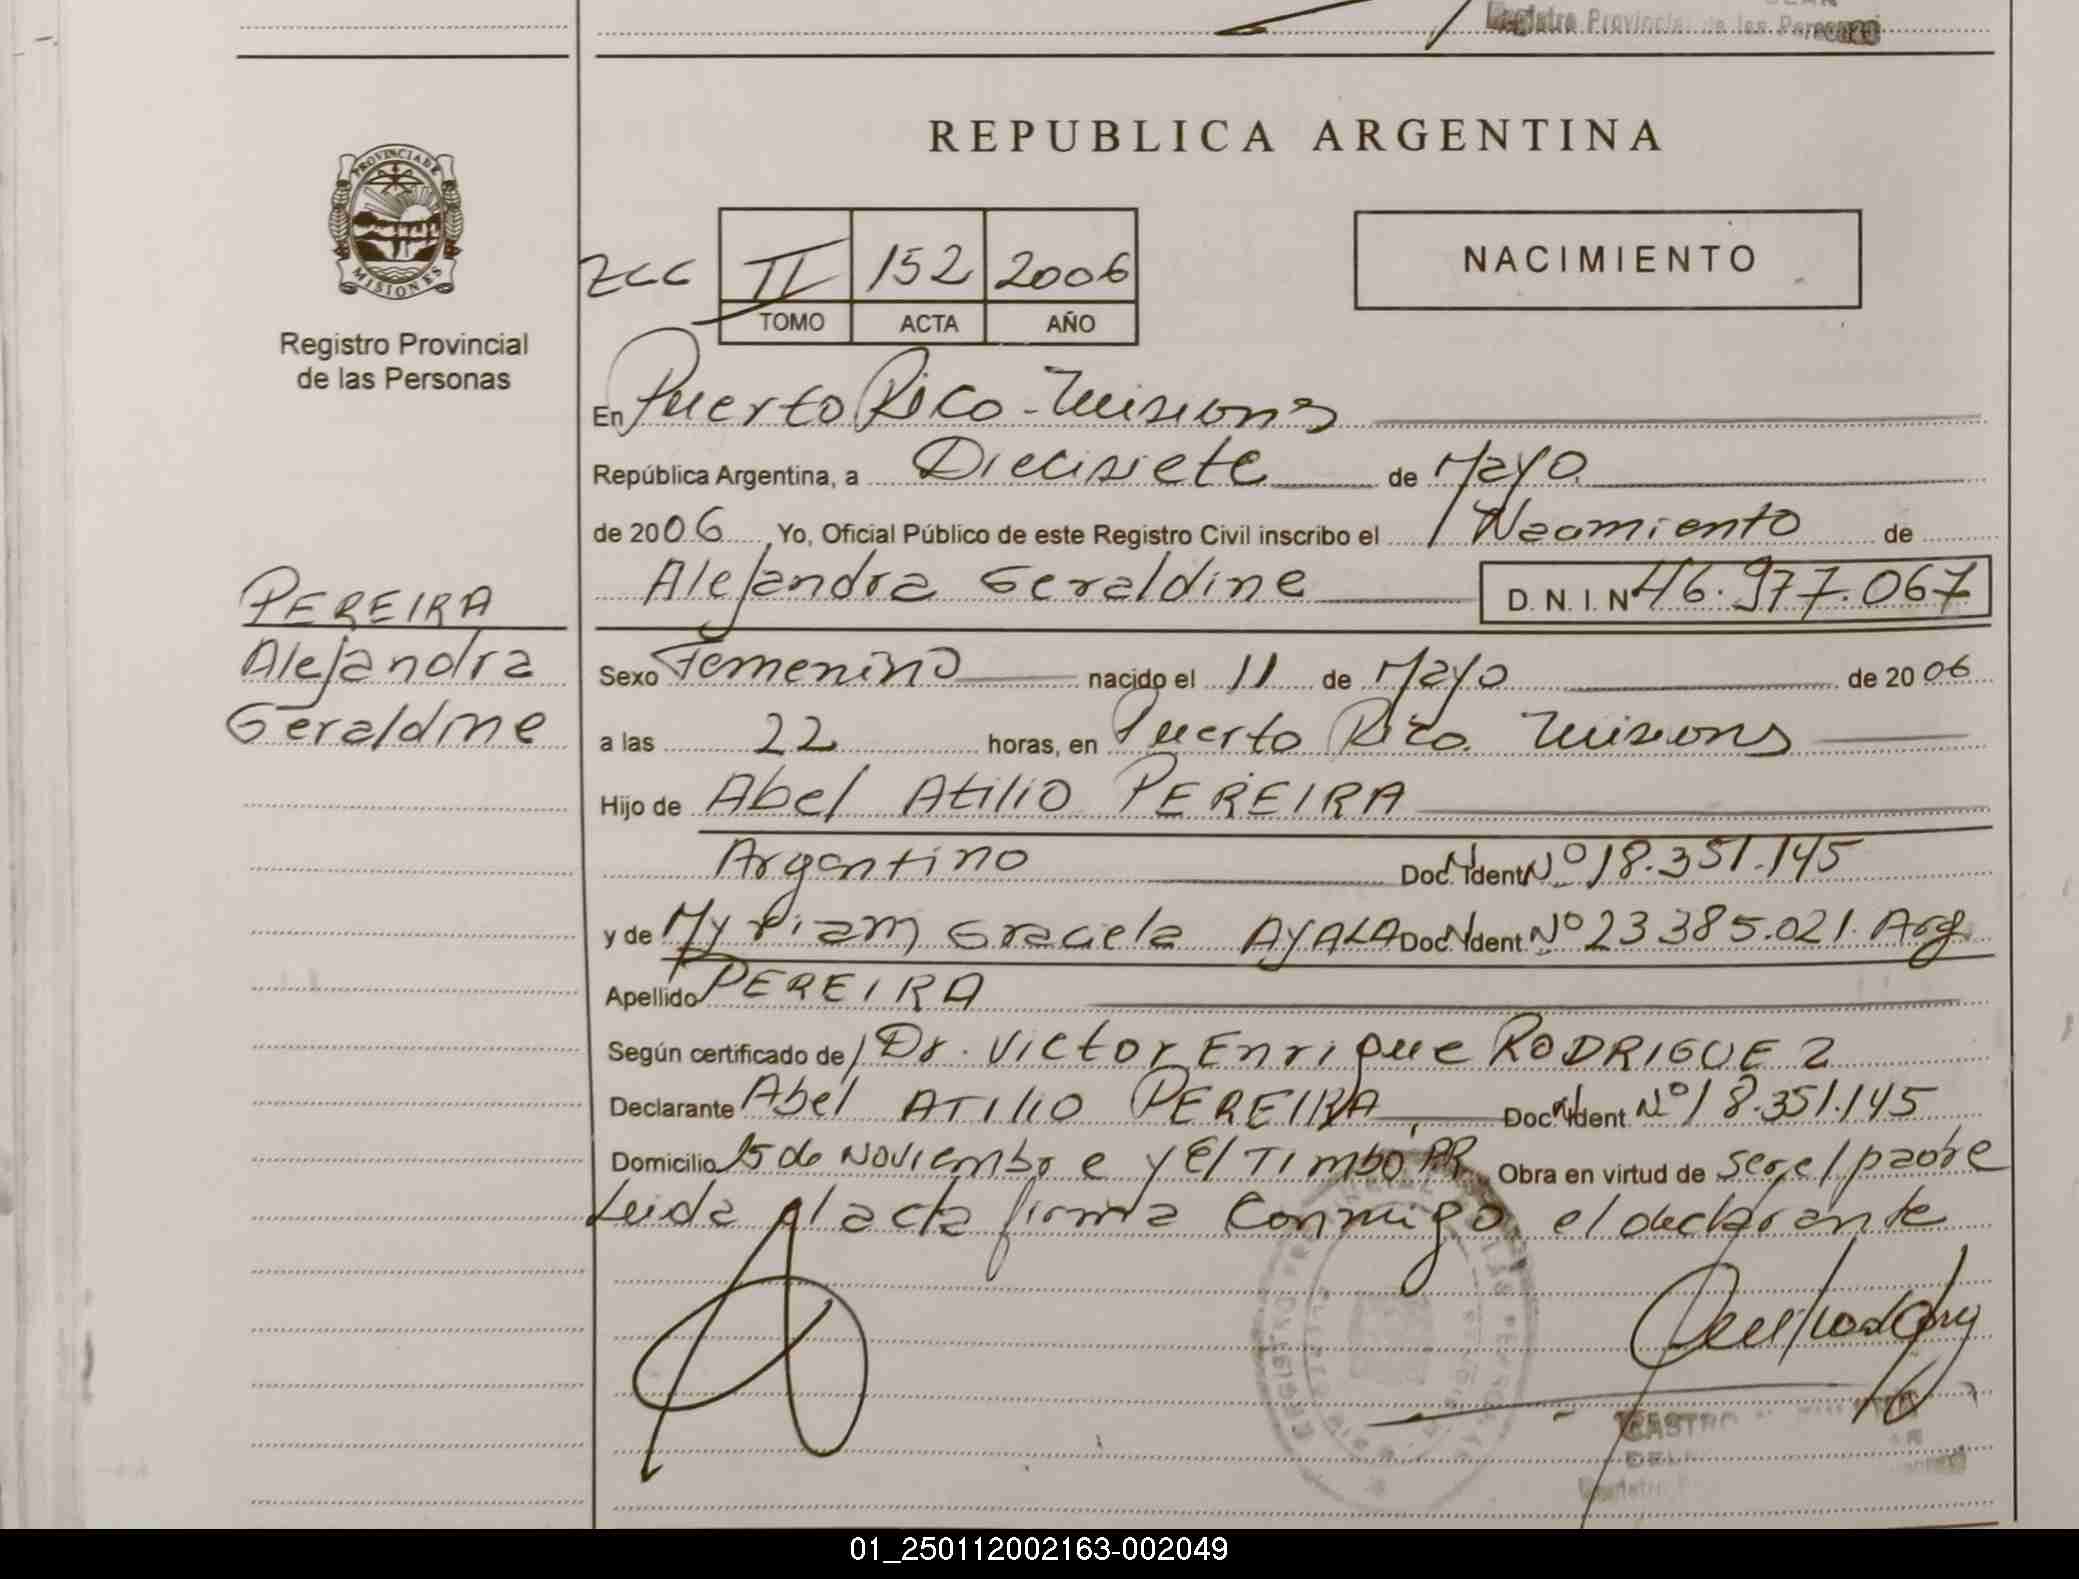 Registro Provincial de las Personas
REPUBLICA ARGENTINA
PROVINCIA DE
MISIONES
Registro Provincial
de las Personas
II 152 2006
TOMO ACTA AÑO
NACIMIENTO
En Puerto Rico - Misiones
República Argentina, a Diecisiete de Mayo
de 2006 Yo, Oficial Público de este Registro Civil inscribo el Nacimiento de
Alejandra Geraldine D.N.I. N 46.977.067
PEREIRA
Alejandra
Geraldine
Sexo Femenino nacido el 11 de Mayo de 2006
a las 22 horas, en Puerto Rico. Misiones
Hijo de Abel Atilio PEREIRA
Argentino Doc. Ident Nº 18.351.145
y de Myriam Graciela AYALA Doc. Ident Nº 23.385.021. Arg
Apellido PEREIRA
Según certificado de Dr. Victor Enrique RODRIGUEZ
Declarante Abel ATILIO PEREIRA Doc. Ident. Nº 18.351.145
Domicilio 15 de Noviembre y El Timbó PR Obra en virtud de ser el padre
Leida el acta firma Conmigo el declarante
01_250112002163-002049